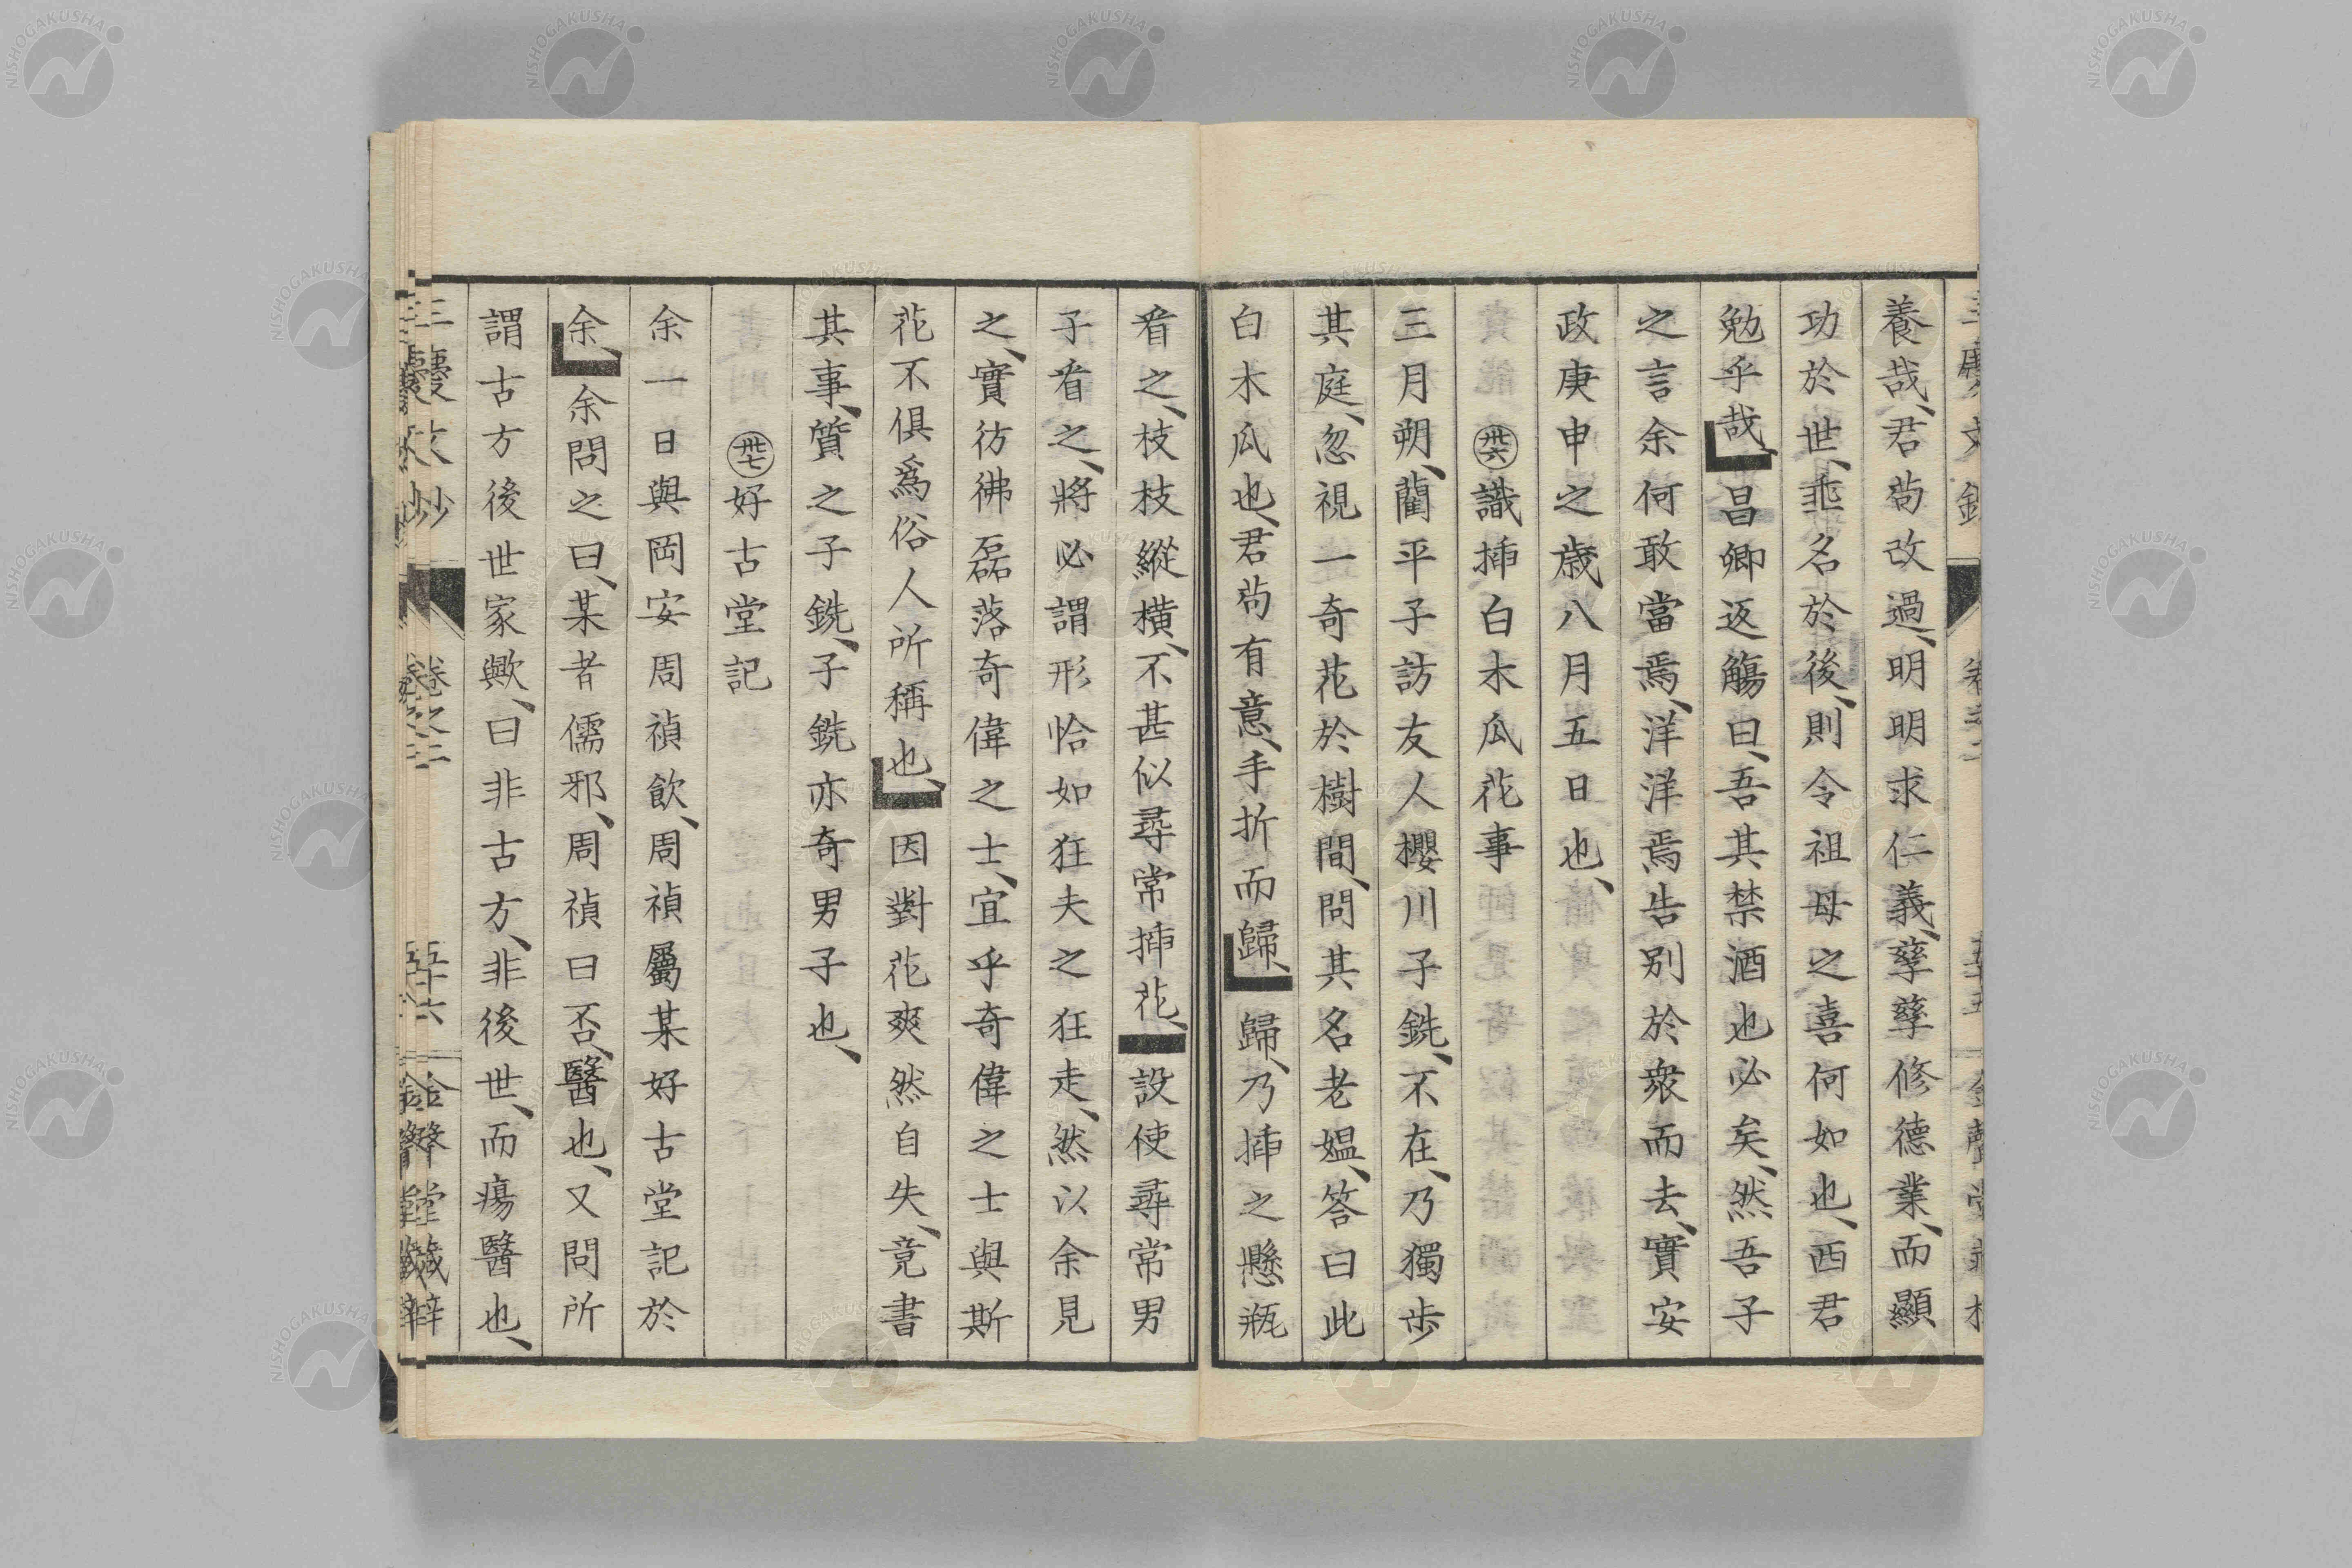 養哉、君茍改過、明明求仁義、孳孳修德業、而顯
功於世、垂名於後、則令祖母之喜何如也、西君
勉乎哉、昌卿返觴曰、吾其禁酒也必矣、然吾子
之言余何敢當焉、洋洋焉告別於衆而去、實安
政庚申之歲八月五日也、
卅六識挿白木瓜花事
三月朔、藺平子訪友人櫻川子銑、不在、乃獨步
其庭、忽視一奇花於樹間、問其名老媼、答曰此
白木瓜也、君茍有意、手折而歸、歸、乃挿之懸瓶
看之、枝枝縱横、不甚似尋常挿花、設使尋常男
子看之、將必謂形恰如狂夫之狂走、然以余見
之、實彷彿磊落奇偉之士、宜乎奇偉之士與斯
花不俱爲俗人所稱也、因對花爽然自失、竟書
其事、質之子銑、子銑亦奇男子也、
卅七好古堂記
余一日與岡安周禎飲、周禎屬某好古堂記於
余、余問之曰、某者儒邪、周禎曰否、醫也、又問所
謂古方後世家歟、曰非古方、非後世、而瘍醫也、
卷之二
五十六